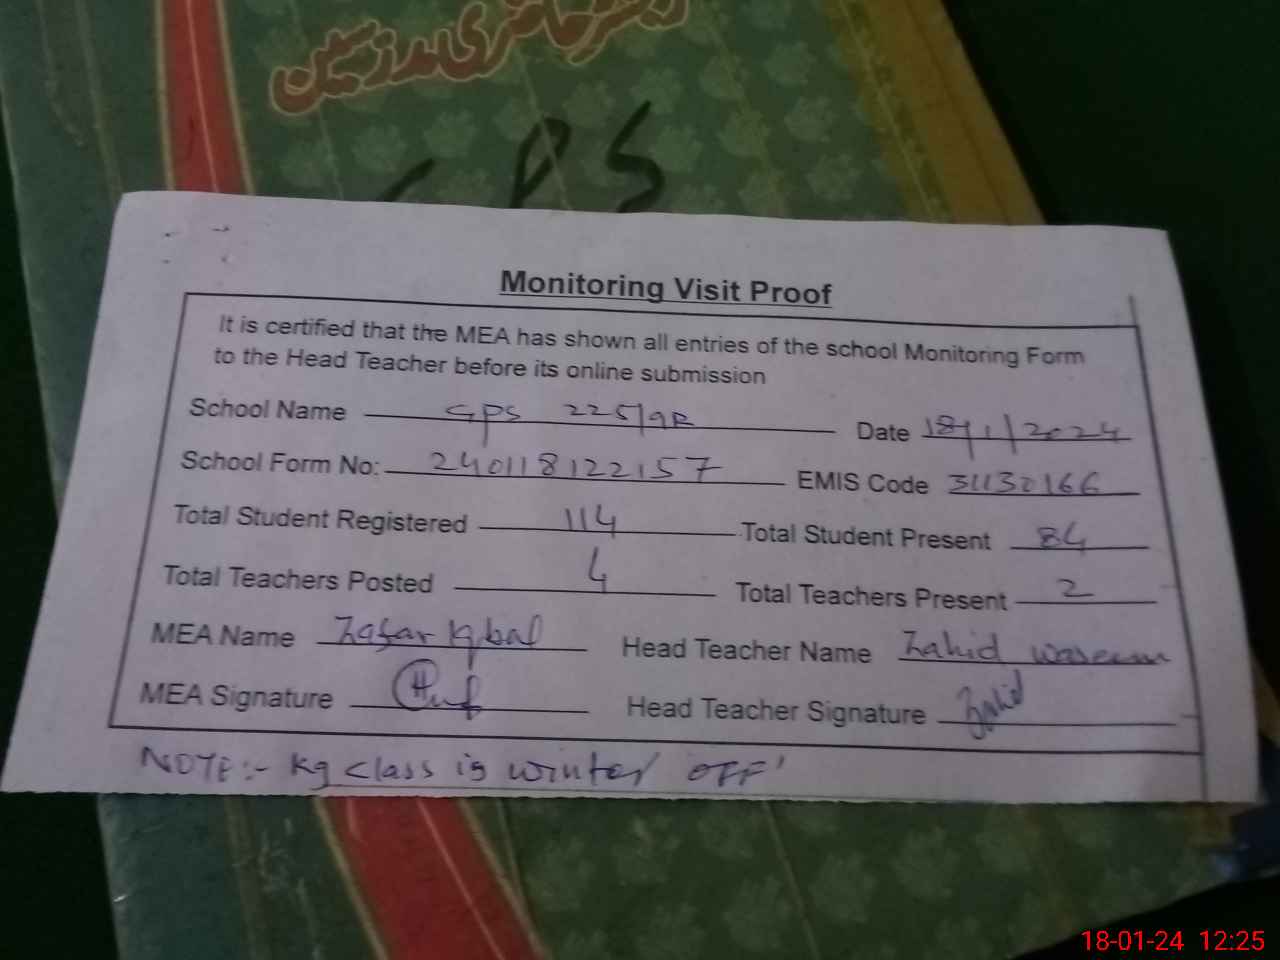 رجسٹر حاضری مدرسین
GPS
Monitoring Visit Proof
It is certified that the MEA has shown all entries of the school Monitoring Form
to the Head Teacher before its online submission
School Name GPS 225/9R Date 18/1/2024
School Form No: 240118122157 EMIS Code 31130166
Total Student Registered 114 Total Student Present 84
Total Teachers Posted 4 Total Teachers Present 2
MEA Name Zafar Iqbal Head Teacher Name Zahid waseem
MEA Signature Head Teacher Signature Zahid
NOTE:- Kg class is winter OFF'
18-01-24 12:25